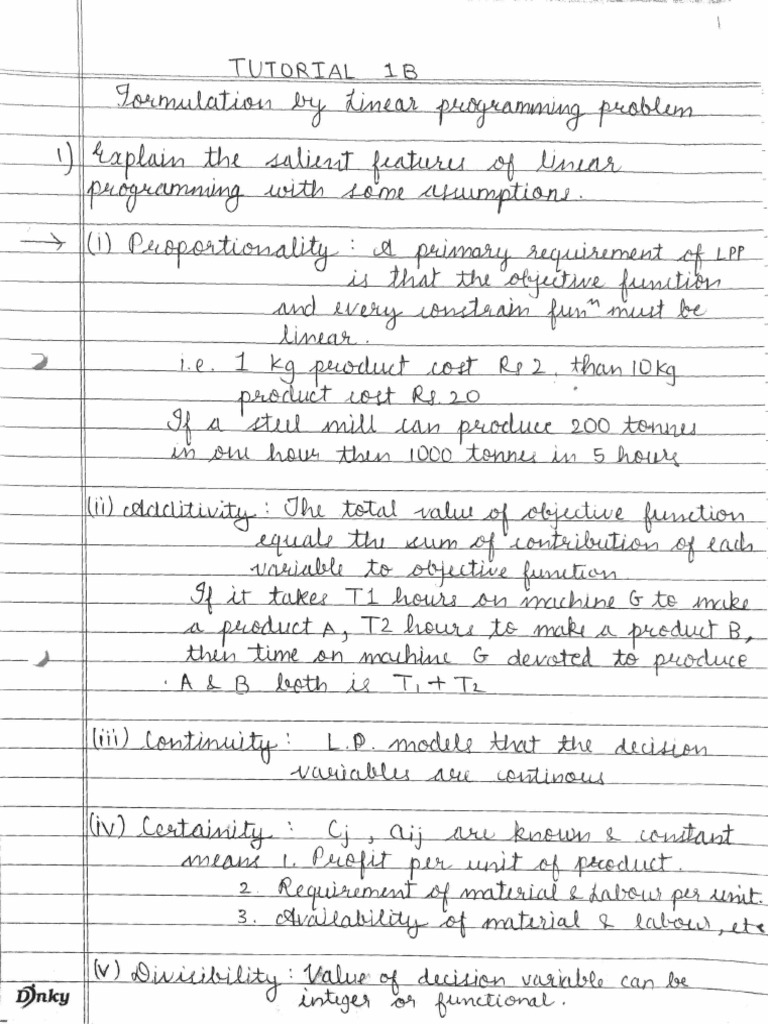 1
TUTORIAL 1B
Formulation by Linear programming problem
1) Explain the salient features of linear
programming with some assumptions.
→ (i) Proportionality : A primary requirement of LPP
is that the objective function
and every constrain funⁿ must be
linear.
i.e. 1 kg product cost Rs 2, than 10 kg
product cost Rs. 20
If a steel mill can produce 200 tonnes
in one hour then 1000 tonnes in 5 hours
(ii) Additivity : The total value of objective function
equals the sum of contribution of each
variable to objective function
If it takes T1 hours on machine G to make
a product A, T2 hours to make a product B,
then time on machine G devoted to produce
A & B both is T₁ + T₂
(iii) Continuity : L.P. models that the decision
variables are continous
(iv) Certainity : Cj, aij are known & constant
means 1. Profit per unit of product.
2. Requirement of material & Labour per unit.
3. Availability of material & labour, etc
(v) Divisibility : Value of decision variable can be
integer or functional.
Dinky